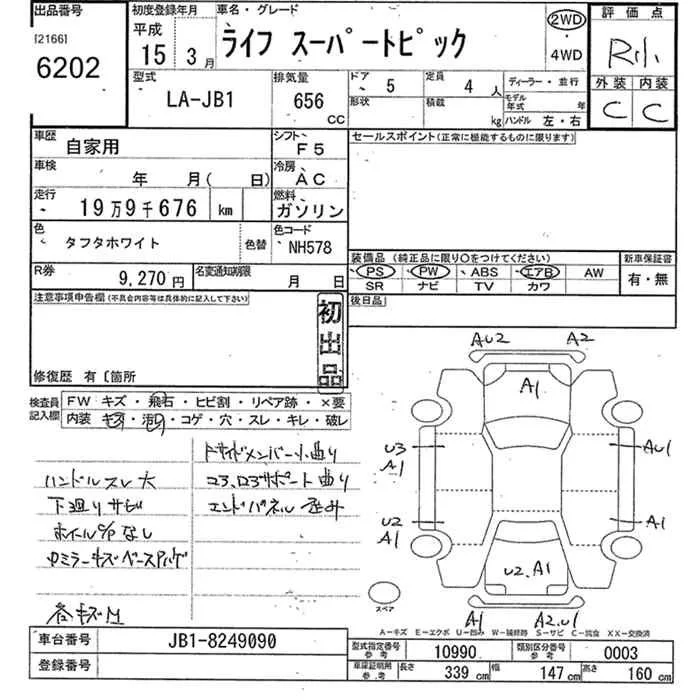 出品番号 初度登録年月 車名・グレード 評価点
[2166] 平成 ライフ スーパートピック 2WD R小
6202 15 3月 ・ 4WD
型式 排気量 ドア 5 定員 4人 ディーラー・並行 外装 内装
LA-JB1 656 CC 形状 積載 kg モデル年式 年 C C
ハンドル 左・右
車歴 自家用 シフト F5 セールスポイント(正常に機能するものに限ります)
車検 年 月( 日) 冷房 AC
走行 19万9千676 km 燃料 ガソリン
色 タフタホワイト 色替 色コード NH578 装備品(純正品に限り○をつけてください) 新車保証書
PS・PW・ABS・エアB AW 有・無
R券 9,270円 名変通知期限 月 日 SR ナビ TV カワ
注意事項申告欄(不具合内容等は具体的に記入して下さい) 初出品 後日品
修復歴 有 [箇所
検査員記入欄 FW キズ・飛石・ヒビ割・リペア跡・×要
内装 キズ・汚れ・コゲ・穴・スレ・キレ・破レ
サイドメンバー小曲り
ハンドルスレ大 コアロアサポート曲り
下廻りサビ エンドパネル歪み
ホイールC/Pなし
ミラーキズ
各キズ
AU2 A2
A1
U3 AU1
A1
U2 A1
A1
U2.A1
スペア A1 A2.U1
A-キズ E-エクボ U-凹み W-補修跡 S-サビ C-腐食 XX-交換済
車台番号 JB1-8249090 型式指定番号 参考 10990 類別区分番号 参考 0003
登録番号 車庫証明用 参考 長さ 339 cm 幅 147 cm 高さ 160 cm